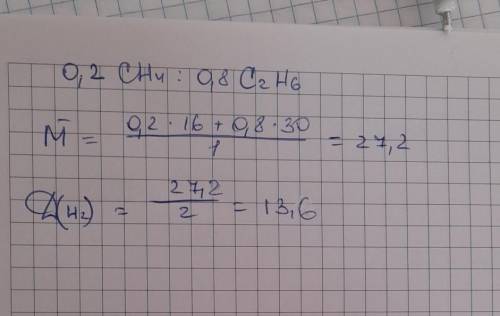 0,2 CH4 : 0,8 C2H6
M̄ = 0,2 · 16 + 0,8 · 30 / 1 = 27,2
D(H2) = 27,2 / 2 = 13,6